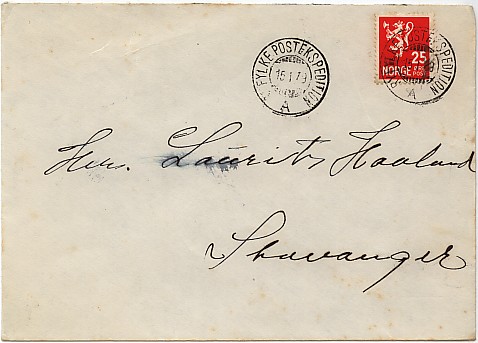 FYLKE POSTEKSPEDITION
15 I 78
A
25
NORGE
POSTEKSPEDITION
A
Herr. Laurits Haaland
Stavanger